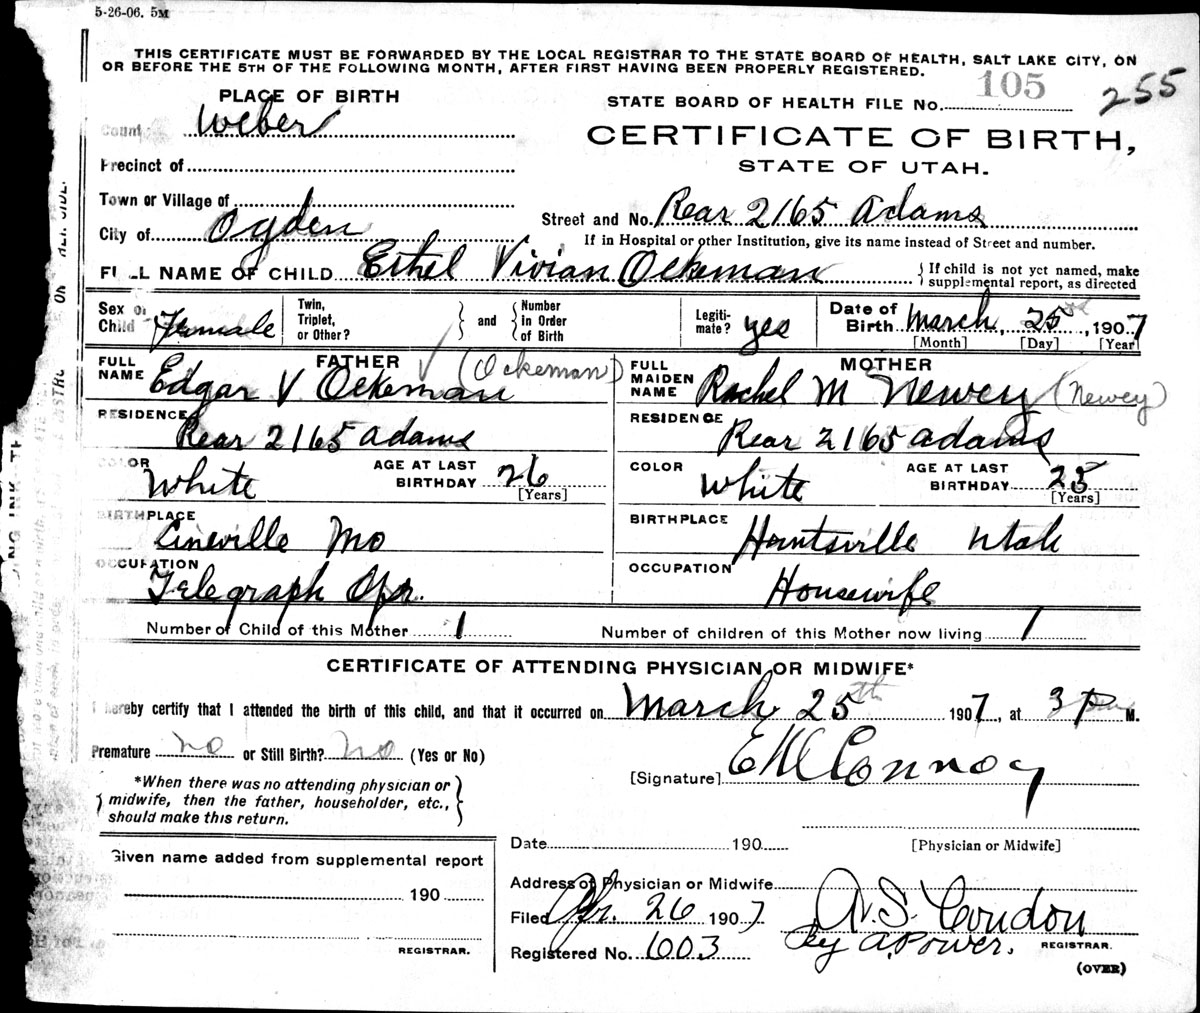 5-26-06. 5M
THIS CERTIFICATE MUST BE FORWARDED BY THE LOCAL REGISTRAR TO THE STATE BOARD OF HEALTH, SALT LAKE CITY, ON
OR BEFORE THE 5TH OF THE FOLLOWING MONTH, AFTER FIRST HAVING BEEN PROPERLY REGISTERED.
PLACE OF BIRTH
STATE BOARD OF HEALTH FILE No. 105 255
County Weber
CERTIFICATE OF BIRTH,
STATE OF UTAH.
Precinct of
Town or Village of
City of Ogden
Street and No. Rear 2165 Adams
If in Hospital or other Institution, give its name instead of Street and number.
FULL NAME OF CHILD Ethel Vivian Ockeman
If child is not yet named, make
supplemental report, as directed
Sex of Child Female
Twin, Triplet, or Other?
and
Number in Order of Birth
Legiti-mate? yes
Date of Birth March, 25th, 1907
[Month] [Day] [Year]
FATHER
FULL NAME Edgar V Ockeman (Ockeman)
MOTHER
FULL MAIDEN NAME Rachel M Newey (Newey)
RESIDENCE Rear 2165 Adams
RESIDENCE Rear 2165 Adams
COLOR White
AGE AT LAST BIRTHDAY 26
[Years]
COLOR White
AGE AT LAST BIRTHDAY 25
[Years]
BIRTHPLACE Lineville Mo
BIRTHPLACE Huntsville Utah
OCCUPATION Telegraph Opr.
OCCUPATION Housewife
Number of Child of this Mother 1
Number of children of this Mother now living 1
CERTIFICATE OF ATTENDING PHYSICIAN OR MIDWIFE*
I hereby certify that I attended the birth of this child, and that it occurred on March 25th 1907, at 3 P M.
Premature no or Still Birth? no (Yes or No)
[Signature] Connoy
*When there was no attending physician or
midwife, then the father, householder, etc.,
should make this return.
[Physician or Midwife]
Date 190
Given name added from supplemental report
190
REGISTRAR.
Address of Physician or Midwife
Filed Apr. 26 1907
A. S. Condon
Registered No. 603
by A. Power.
REGISTRAR.
(OVER)